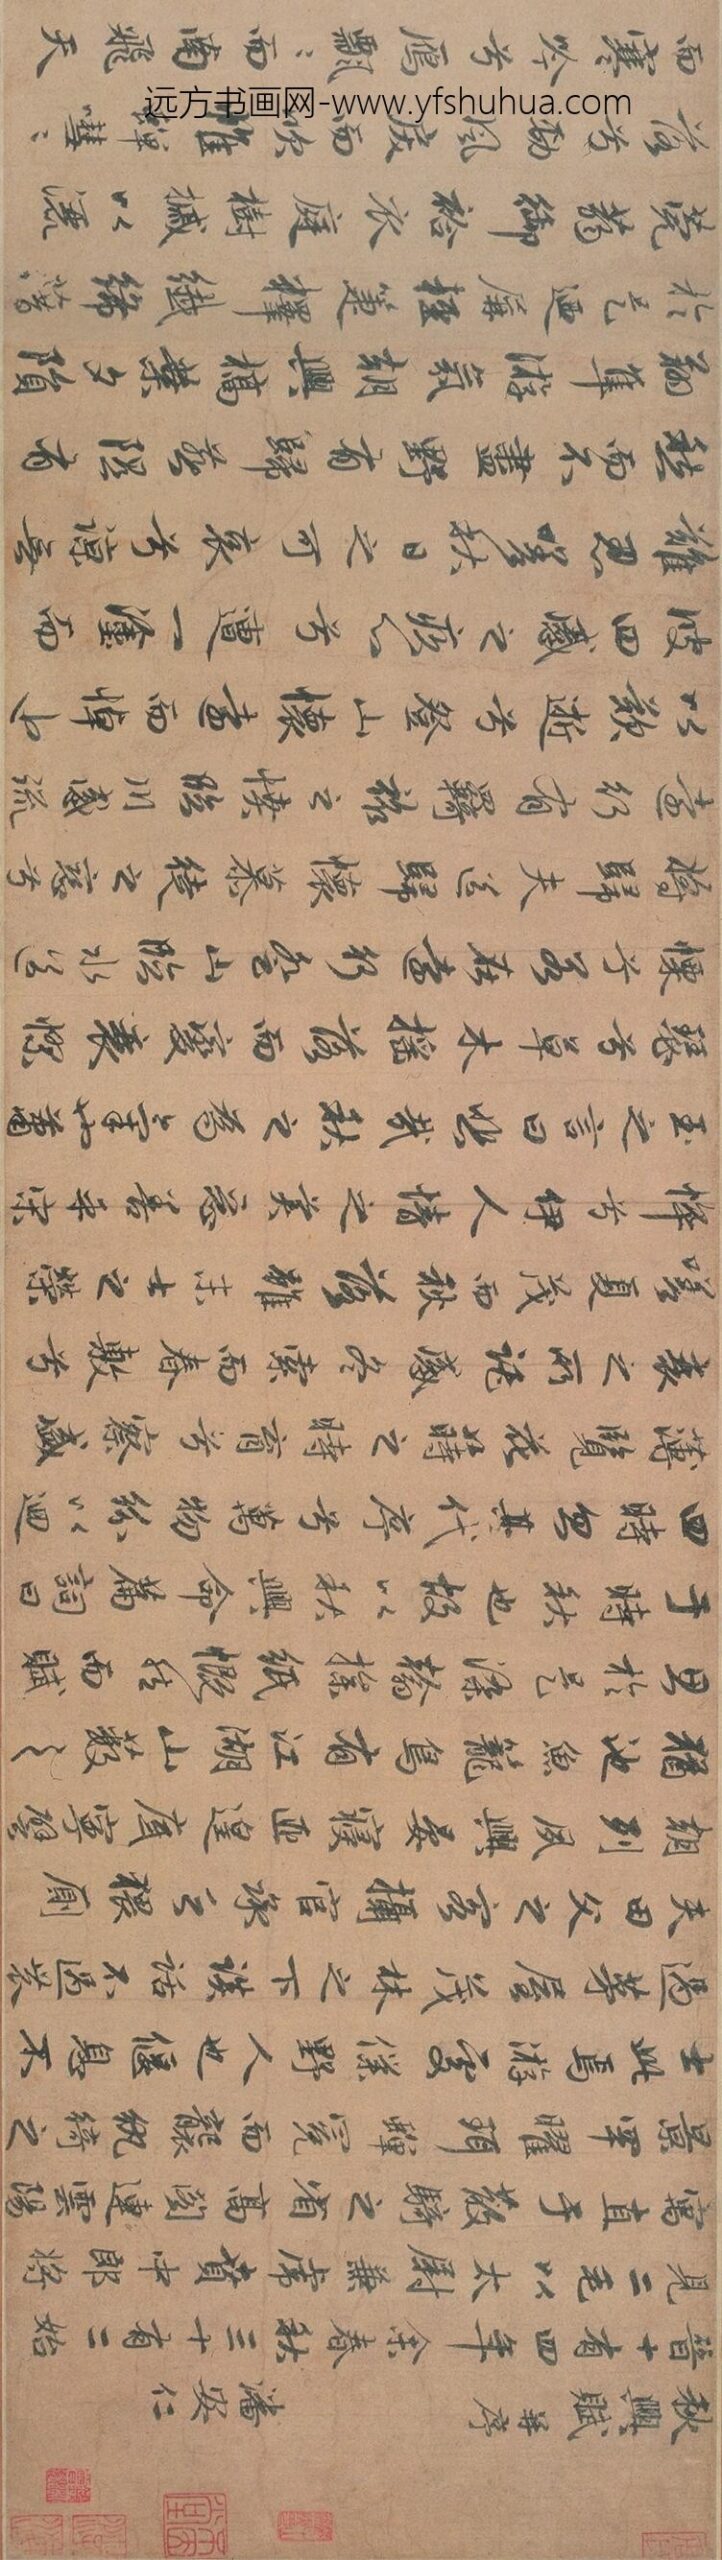 远方书画网-www.yfshuhua.com
秋興賦并序 潘安仁
晉十有四年余春秋三十有二始
見二毛以太尉兼虎賁中郎將
寓直于散騎之省高閣連雲陽
景罕曜珥蟬冕而襲紈綺之
士此焉游處僕野人也偃息不
過茅屋茂林之下談話不過農
夫田父之客攝官承乏猥廁
朝列夙興晏寢匪遑底寧譬
猶池魚籠鳥有江湖山藪之
思於是染翰操紙慨然而賦
于時秋也故以秋興命篇詞曰
四時忽其代序兮萬物紛以迴
薄覽花蒔之時育兮察盛
衰之所託感冬索而春敷兮
嗟夏茂而秋落雖末士之榮
悴兮伊人情之美惡善乎宋
玉之言曰悲哉秋之為氣也蕭
瑟兮草木搖落而變衰憀
慄兮若在遠行登山臨水送
將歸夫送歸懷慕徒之戀兮
遠行有羈旅之憤臨川感流
以歎逝兮登山懷遠而悼近
彼四慼之疚心兮遭一塗而
難忍嗟秋日之可哀兮諒無
愁而不盡野有歸燕隰有
翔隼游氛朝興槁葉夕隕
於是迺屏輕箑釋纖絺藉
莞蒻御袷衣庭樹槭以灑
落兮勁風戾而吹帷蟬嘒嘒
而寒吟兮鴈飄飄而南飛天